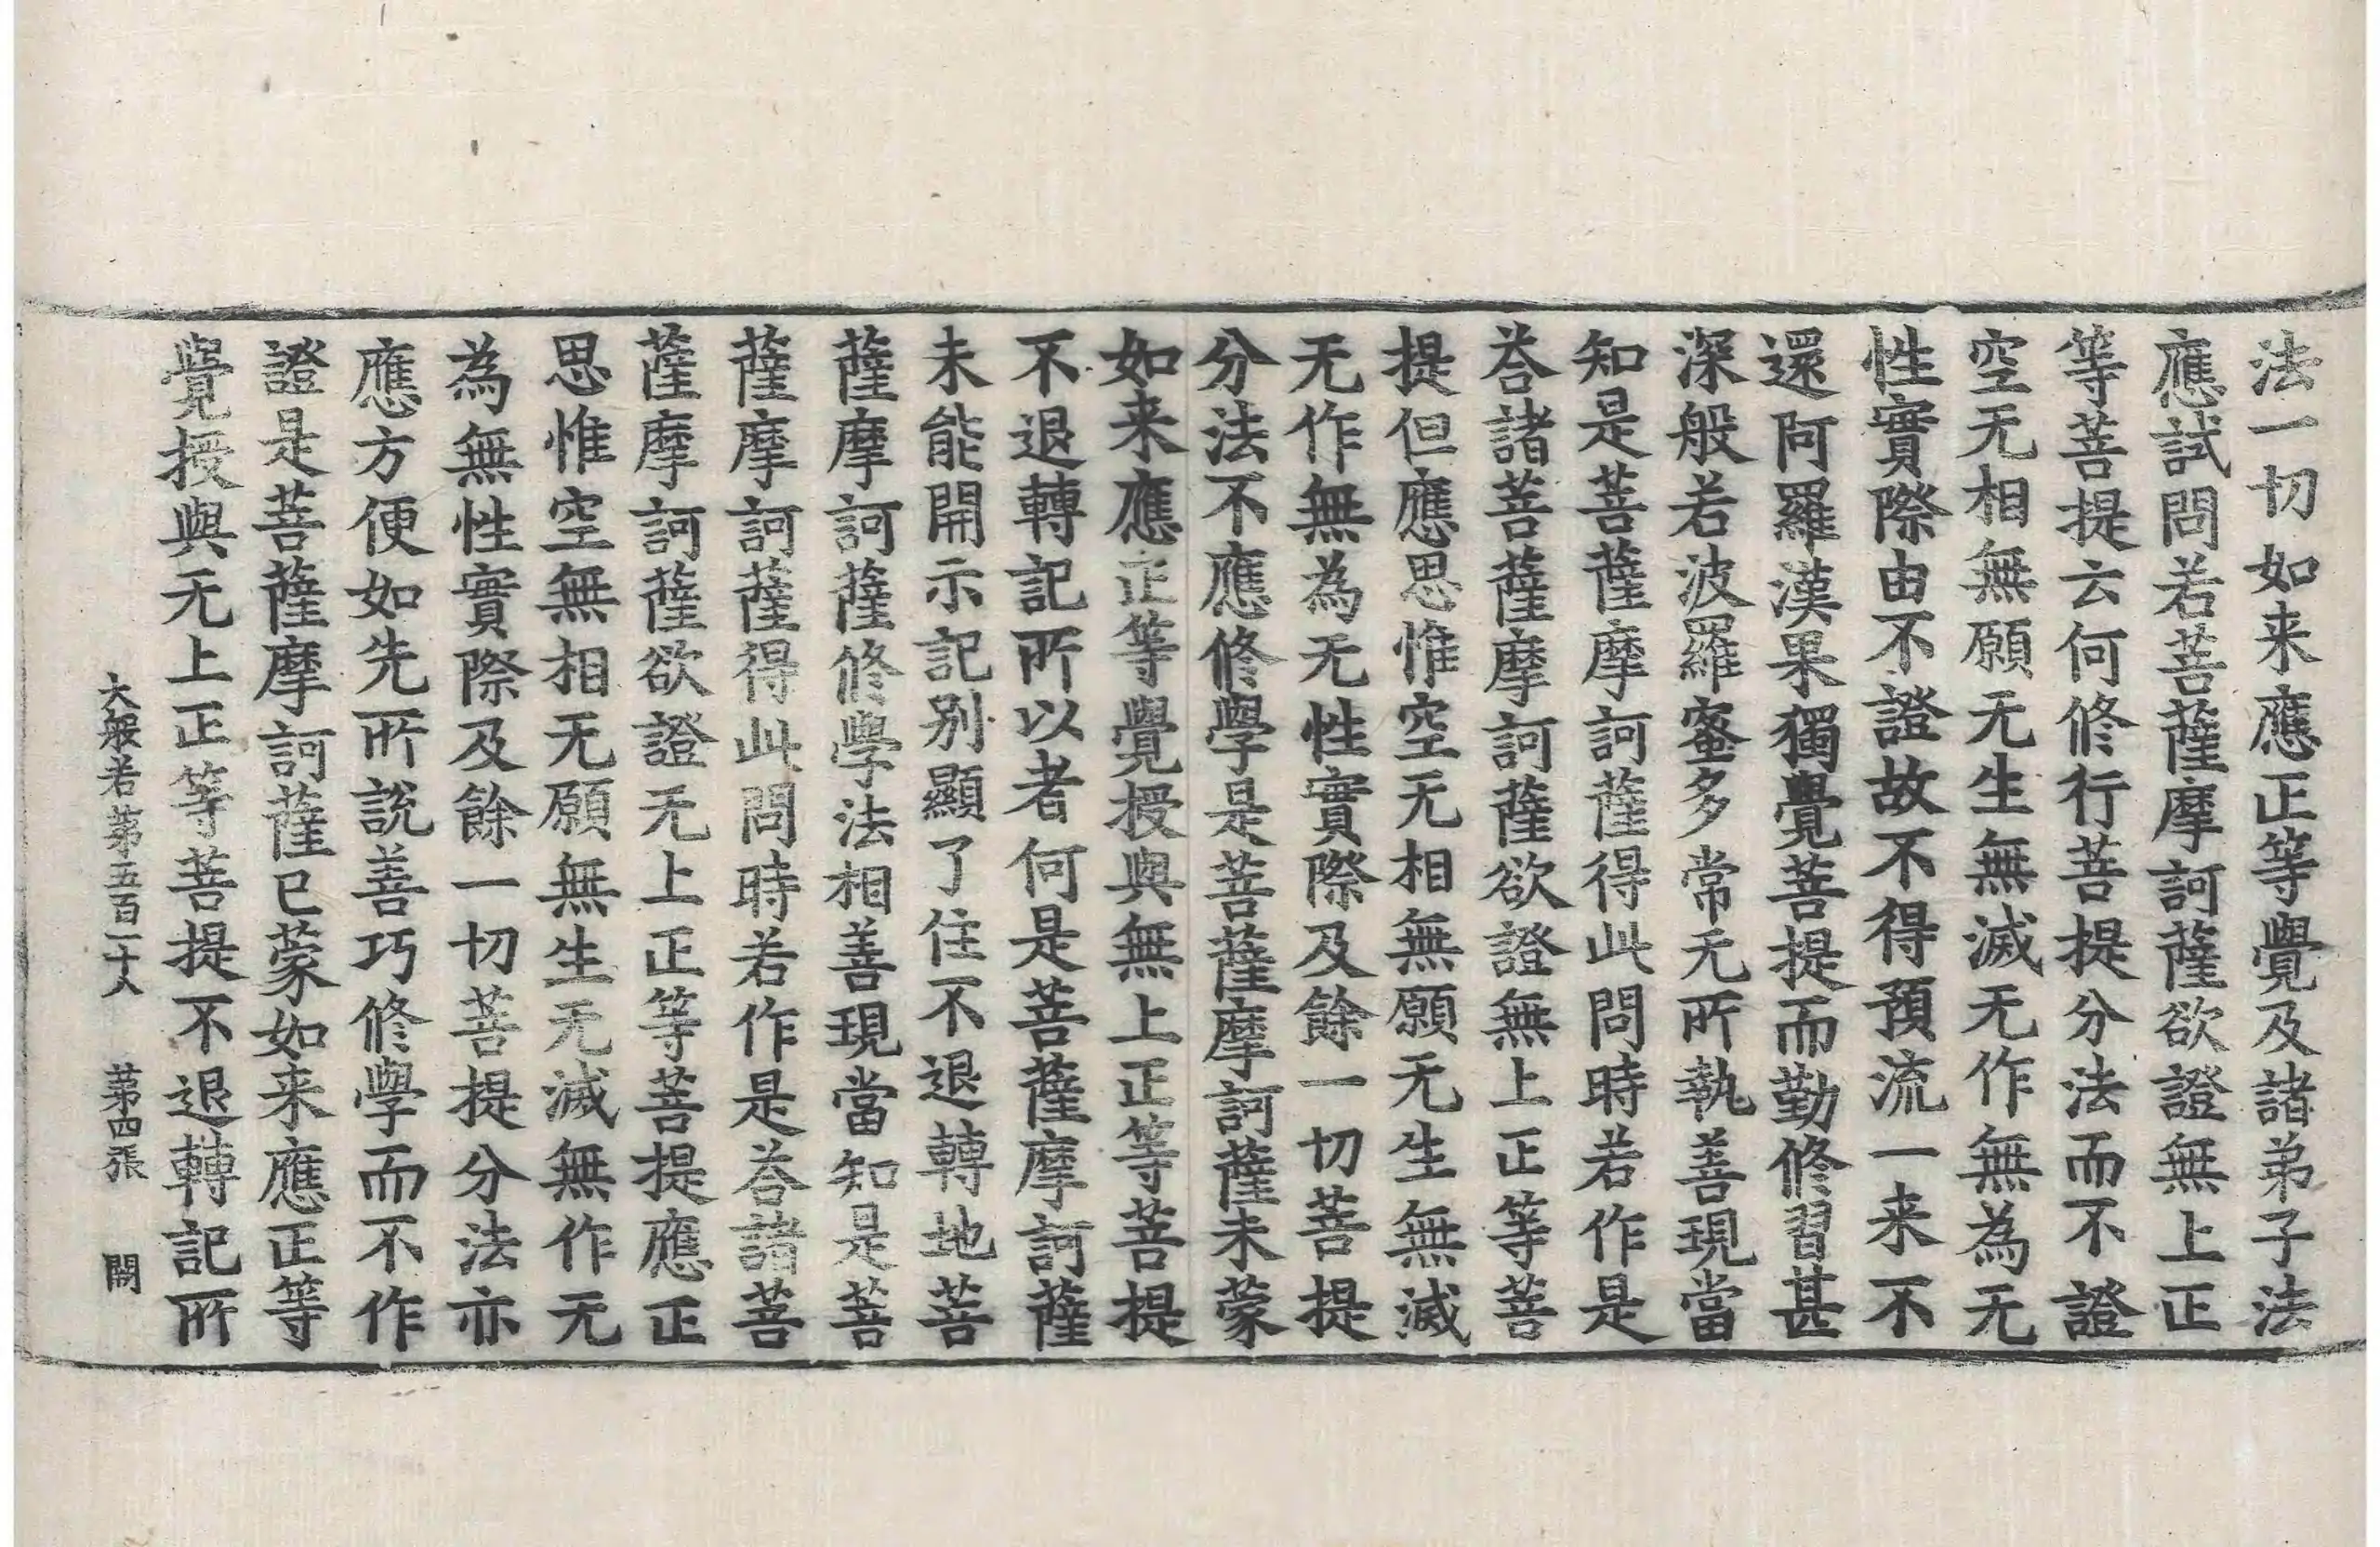 法一切如来應正等覺及諸弟子法
應試問若菩薩摩訶薩欲證無上正
等菩提云何修行菩提分法而不證
空无相無願无生無滅无作無為无
性實際由不證故不得預流一来不
還阿羅漢果獨覺菩提而勤修習甚
深般若波羅蜜多常无所執善現當
知是菩薩摩訶薩得此問時若作是
荅諸菩薩摩訶薩欲證無上正等菩
提但應思惟空无相無願无生無滅
无作無為无性實際及餘一切菩提
分法不應修學是菩薩摩訶薩未蒙
如来應正等覺授與無上正等菩提
不退轉記所以者何是菩薩摩訶薩
未能開示記别顯了住不退轉地菩
薩摩訶薩修學法相善現當知是菩
薩摩訶薩得此問時若作是荅諸菩
薩摩訶薩欲證无上正等菩提應正
思惟空無相无願無生无滅無作无
為無性實際及餘一切菩提分法亦
應方便如先所說善巧修學而不作
證是菩薩摩訶薩已蒙如来應正等
覺授與无上正等菩提不退轉記所
大般若第五百二十八 第四張 閙